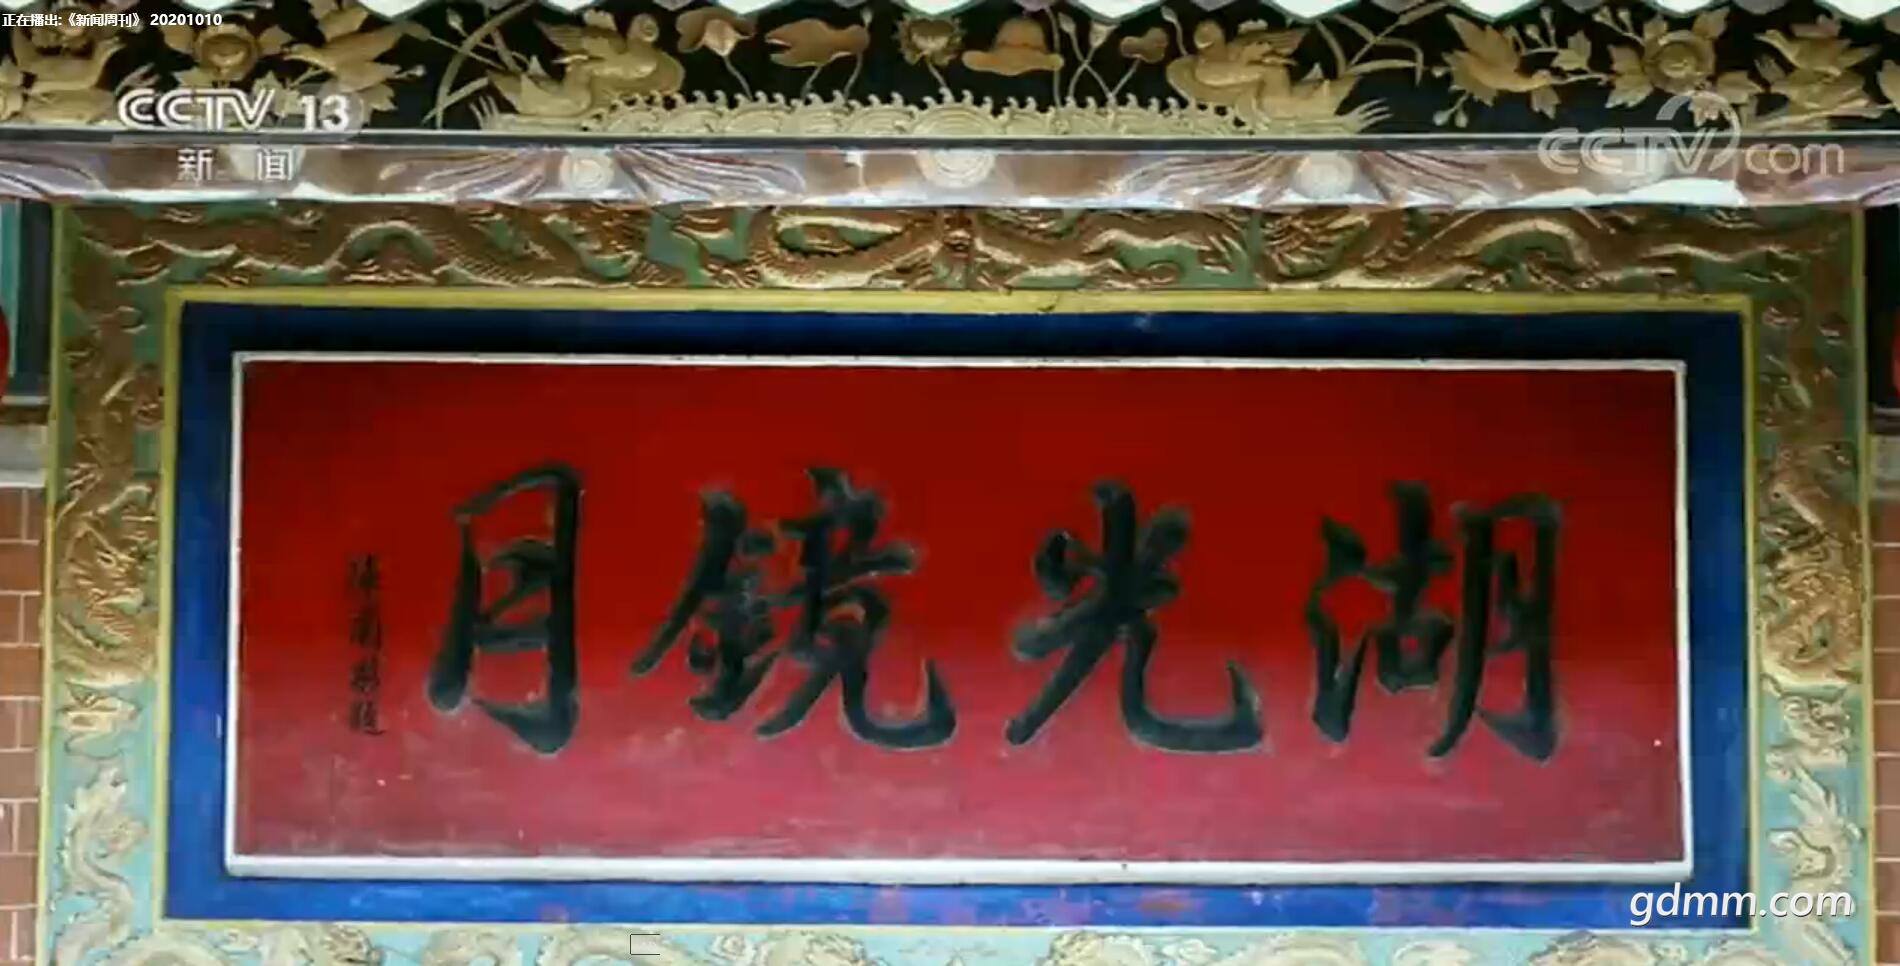 正在播出:《新闻周刊》 20201010
CCTV 13
新闻
CCTV.com
湖光鏡月
gdmm.com